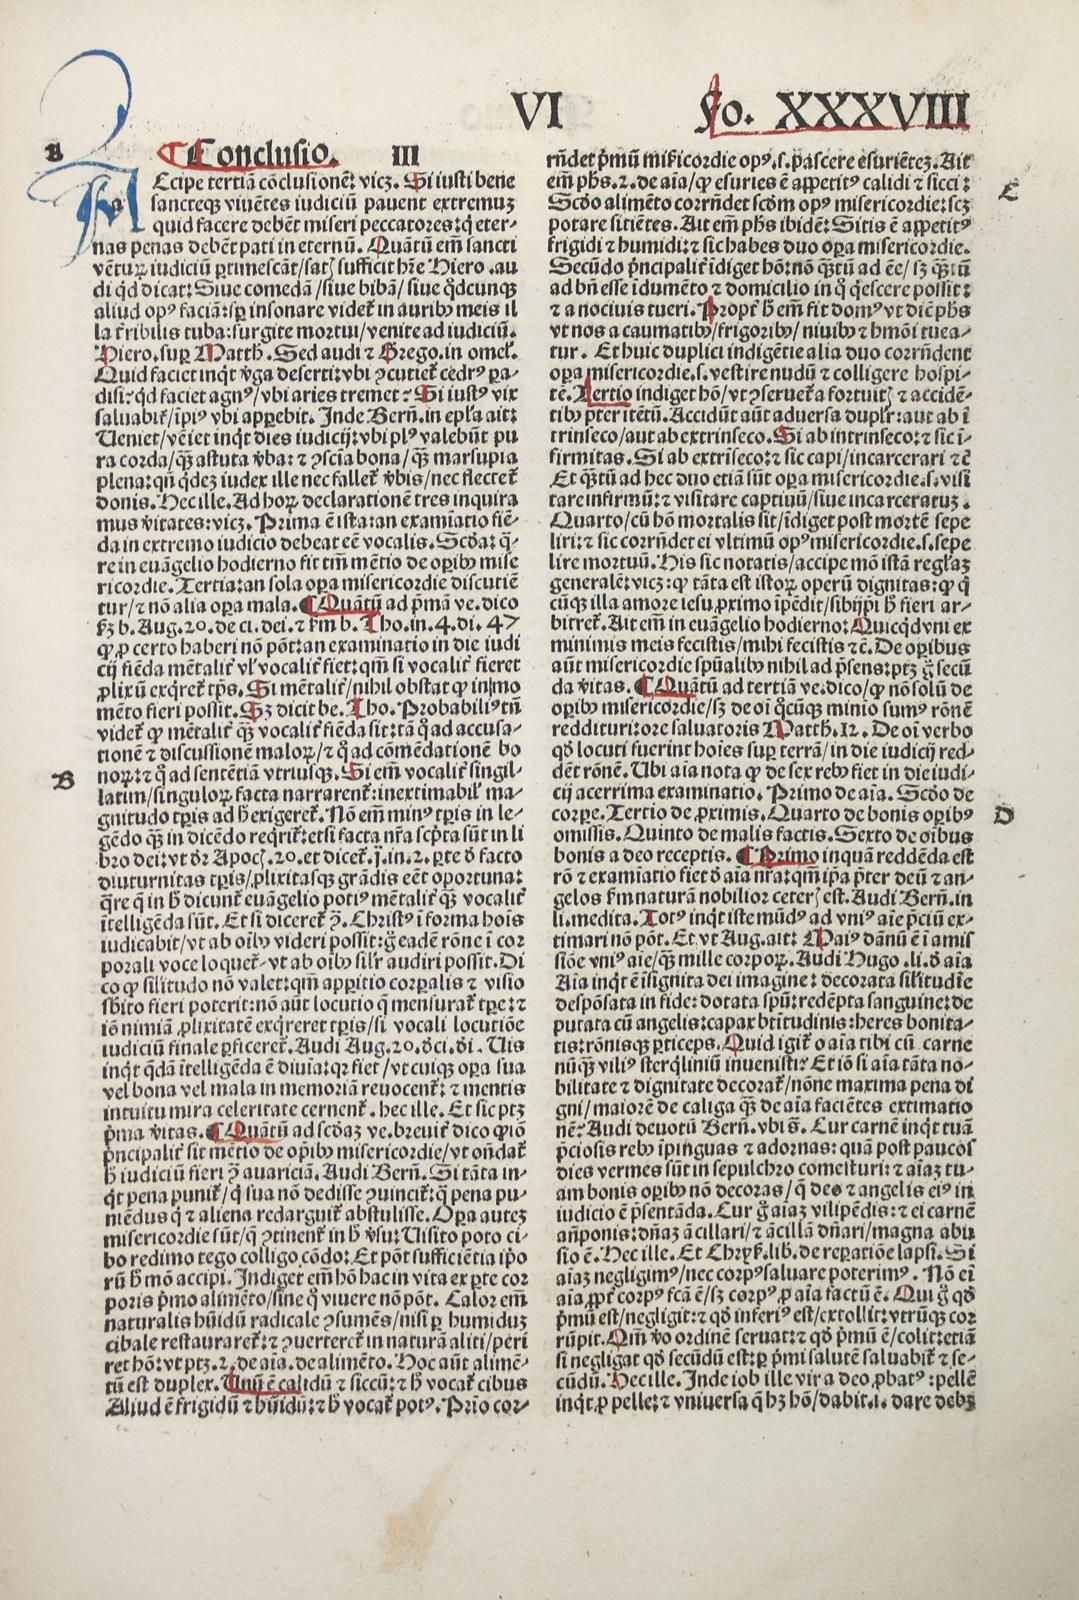 VI
Fo. XXXVIII
A
Conclusio. III
Ecipe tertiā cōclusionē: vicz. Si iusti bene
sancteqꝫ viuētes iudiciū pauent extremuꝫ
quid facere debēt miseri peccatores: q̇ eter⸗
nas penas debēt pati in eternū. Quātū em̄ sancti
vētuꝝ iudiciū ꝑtimescāt/satꝭ sufficit hr̄e Hiero. au
di qd dicat: Siue comedā/siue bibā/siue qdcunqꝫ
aliud opꝰ faciā: sꝑ insonare videt̄ in auribꝰ meis il
la tr̄ibilis tuba: surgite mortui/venite ad iudiciū.
Hiero. suꝑ Matth. Sed audi ⁊ Grego. in omel̄.
Quid faciet inqt v̄ga deserti: vbi ꝯcutiet̄ cedrꝰ pa⸗
disi: qd faciet agnꝰ/vbi aries tremet: Si iustꝰ vix
saluabit̄/īpiꝰ vbi apꝑebit. Inde Bern̄. in epl̄a ait:
Ueniet/vēiet inqt dies iudicij: vbi plꝰ valebūt pu
ra corda/qꝫ̄ astuta v̄ba: ⁊ ꝯscīa bona/qꝫ̄ marsupia
plena: qn̄ qdeꝫ iudex ille nec fallet̄ v̄bis/nec flectet̄
donis. Hec ille. Ad hoꝝ declarationē tres inquira
mus v̄itates: vicꝫ. Prima ē ista: an examīatio fiē⸗
da in extremo iudicio debeat eē vocalis. Scd̄a: q̄⸗
re in euāgelio hodierno fit tm̄ mētio de oꝑibꝰ mise
ricordie. Tertia: an sola oꝑa misericordie discutiē
tur/⁊ nō alia oꝑa mala. ¶ Quātū ad pͥmā ve. dico
ẜꝫ b. Aug. 20. de ci. dei. ⁊ ẜm b. Tho. in. 4. di. 47
ꝙ ꝓ certo haberi nō pōt: an examinatio in die iudi
cij fiēda mētalit̄ vl̓ vocalit̄ fiet: qm̄ si vocalit̄ fieret
ꝓlixū exqret̄ tp̄s. Si mētalit̄/nihil obstat ꝙ in mo
mēto fieri possit. Sꝫ dicit be. Tho. Probabiliꝰ tn̄
videt̄ ꝙ mētalit̄ qꝫ̄ vocalit̄ fiēda sit: tā qͦ ad accusa⸗
tionē ⁊ discussionē maloꝝ/⁊ qͦ ad cōmēdationē bo
noꝝ: ⁊ qͦ ad sentētiā vtriusqꝫ. Si em̄ vocalit̄ singil⸗
B
latim/singuloꝝ facta narrarent̄: inextimabil̓ ma⸗
gnitudo tꝑis ad h̄ exigeret̄. Nō em̄ minꝰ tꝑis in le⸗
gēdo qꝫ̄ in dicēdo reqrit̄: etsi facta nr̄a scp̄ta sūt in li
bro dei: vt dr̄ Apocꝭ. 20. et dicet̄. j̄. in. 2. ꝑte d̓ facto
diuturnitas tꝑis/ꝓlixitasqꝫ grādis eēt oportuna:
qͣre q̄ in h̄ dicunt̄ euāgelio potiꝰ mētalit̄ qꝫ̄ vocalit̄
ītelligēda sūt. Et si diceret̄ ꝯ̄. Christꝰ ī forma hoīs
iudicabit/vt ab oībꝰ videri possit: g̓ eadē rōne ī cor
porali voce loquet̄⸗vt ab oībꝰ sil̓r audiri possit. Di
co ꝙ sil̓itudo nō valet: qm̄ apꝑitio corꝑalis ⁊ visio
sbͥito fieri poterit: nō aūt locutio q̄ mensurat̄ tꝑe: ⁊
iō nimiā ꝓlixitatē exqͥreret tꝑis/si vocali locutiōe
iudiciū finale ꝑficeret̄. Audi Aug. 20. d̓ ci. di. Uis
inqt qdā ītelligēda ē diuīa: qr fiet/vt cuiqꝫ oꝑa sua
vel bona vel mala in memoriā reuocent̄: ⁊ mentis
intuitu mira celeritate cernent̄. hec ille. Et sic ptꝫ
pͥma v̄itas. ¶ Quātū ad scd̄aꝫ ve. breuit̄ dico ꝙ iō
pͥncipalit̄ sit mētio de oꝑibꝰ misericordie/vt ōndat̄
h̄ iudiciū fieri ꝯ̄ auariciā. Audi Bern̄. Si tāta in⸗
qt pena punit̄/qͥ sua nō dedisse ꝯuincit̄: q̄ pena pu⸗
niēdus qͥ ⁊ aliena redarguit̄ abstulisse. Oꝑa auteꝫ
misericordie sūt/q̄ ꝯtinent̄ in h̄ v̓su: Uisito poto ci⸗
bo redimo tego colligo cōdo: Et pōt sufficiētia ipͦo
rū h̄ mō accipi. Indiget em̄ hō hac in vita ex ꝑte cor
poris pͥmo alimēto/sine qͦ viuere nō pōt. Calor em̄
naturalis hūidū radicale ꝯsumēs/nisi ꝑ humiduꝫ
cibale restauraret̄: ⁊ ꝯuerteret̄ in naturā aliti/peri
ret hō: vt ptꝫ. 2. de aīa. de alimēto. Hoc aūt alimē⸗
tū est duplex. Unū ē calidū ⁊ siccū: ⁊ h̄ vocat̄ cibus
Aliud ē frigidū ⁊ hūidū: ⁊ h̄ vocat̄ potꝰ. Prīo cor⸗
rn̄det pͥmū mīẜicordie opꝰ. s. pascere esuriētez. Ait
em̄ ph̄s. 2. de aīa/ꝙ esuries ē appetitꝰ calidi ⁊ sicci:
C
Scd̄o alimēto corrn̄det scd̄m opꝰ misericordie: scꝫ
potare sitiētes. Ait em̄ ph̄s ibidē: Sitis ē appetitꝰ
frigidi ⁊ humidi: ⁊ sic habes duo oꝑa misericordie.
Secūdo pͥncipalit̄ īdiget hō: nō qꝫ̄tū ad eē/sꝫ qꝫ̄tū
ad bn̄ esse īdumēto ⁊ domicilio in qͦ qͥescere possit:
⁊ a nociuis tueri. Propt̄ h̄ em̄ fit domꝰ vt dic̄ ph̄s
vt nos a caumatibꝰ/frigoribꝰ/niuibꝰ ⁊ hmōi tuea⸗
tur. Et huic duplici indigētie alia duo corrn̄dent
oꝑa misericordie. s. vestire nudū ⁊ colligere hospi⸗
tē. Tertio indiget hō/vt ꝯseruet̄ a fortuitꝭ ⁊ accidē⸗
tibꝰ pͥter itētū. Accidūt aūt aduersa dupl̓r: aut ab ī
trinseco/aut ab extrinseco. Si ab intrinseco: ⁊ sic ī⸗
firmitas. Si ab extrīseco: ⁊ sic capi/incarcerari ⁊c̄
Et qꝫ̄tū ad hec duo etiā sūt oꝑa misericordie. s. visi
tare infirmū: ⁊ visitare captiuū/siue incarceratuꝫ.
Quarto/cū hō mortalis sit/īdiget post mortē sepe
liri: ⁊ sic corrn̄det ei vltimū opꝰ misericordie. s. sepe
lire mortuū. His sic notatis/accipe mō istā regl̓aꝫ
generalē: vicꝫ: ꝙ tāta est istoꝝ operū dignitas: ꝙ q̄
cūqꝫ illa amore iesu ꝓximo īpēdit/sibijp̄i h̄ fieri ar⸗
bitret̄. Ait em̄ in euāgelio hodierno: Quicqd vni ex
minimis meis fecistis/mihi fecistis ⁊c̄. De oꝑibus
aūt misericordie spūalibꝰ nihil ad pͥsens: ptꝫ g̓ secū
da v̄itas. ¶ Quātū ad tertiā ve. dico/ꝙ nō solū de
oꝑibꝰ misericordie/sꝫ de oī qͦcūqꝫ minīo sumꝰ rōnē
reddituri: ore saluatoris Matth. 12. De oī verbo
qd̓ locuti fuerint hoīes suꝑ terrā/in die iudicij red⸗
dēt rōnē. Ubi aīa nota ꝙ de sex rebꝰ fiet in die iudi⸗
cij acerrima examinatio. Primo de aīa. Scd̄o de
D
corꝑe. Tertio de ꝓximis. Quarto de bonis oꝑibꝰ
omissis. Quinto de malis factis. Sexto de oībus
bonis a deo receptis. ¶ Primo inquā reddēda est
rō ⁊ examinatio fiet d̓ aīa nr̄a: qm̄ ip̄a pͥter deū ⁊ an⸗
gelos ẜm naturam nobilior ceterꝭ est. Audi Bern̄. in
li. medita. Totꝰ inqt iste mūdꝰ ad vniꝰ aīe pͥciū ex⸗
timari nō pōt. Et vt Aug. ait: Maiꝰ dānū ē ī amis
siōe vniꝰ aīe/qꝫ̄ mille corpoꝝ. Audi Hugo. li. d̓ aīa
Aīa inqt ē īsignita dei imagine: decorata sil̓itudīe
despōsata in fide: dotata spū: redēpta sanguine: de
putata cū angelis: capax bt̄itudinis: heres bonita⸗
tis: rōnisqꝫ ꝑticeps. Quid igit̄ o aīa tibi cū carne
nūqꝫ̄ viliꝰ sterqliniū inuenisti: Et iō si aīa tāta no⸗
bilitate ⁊ dignitate decorat̄/nōne maxima pena di
gni/maiorē de caliga qꝫ̄ de aīa faciētes extimatio
nē: Audi deuotū Bern̄. vbi s̄. Cur carnē inqt tuā
pͥciosis rebꝰ īpinguas ⁊ adornas: quā post paucos
dies vermes sūt in sepulchro comesturi: ⁊ aīaꝫ tu⸗
am bonis oꝑibꝰ nō decoras/q̄ deo ⁊ angelis eiꝰ in
iudicio ē pͥsentāda. Cur g̓ aīaꝫ vilipēdis: ⁊ ei carnē
an̄ponis: dn̄aꝫ ācillari/⁊ ācillā dn̄ari/magna abu
sio ē. Hec ille. Et Chryẜ. lib. de reꝑatiōe lapsi. Si
aīaꝫ negligimꝰ/nec corpꝰ saluare poterimꝰ. Nō eī
aīa ꝓpt̄ corpꝰ fc̄a ē/sꝫ corpꝰ ꝓ aīa factū ē. Qui g̓ qd̓
pͥmū est/negligit: ⁊ qd̓ inferiꝰ est/extollit: vtrūqꝫ cor
rūpit. Qm̄ v̓o ordinē seruat: ⁊ qd̓ pͥmū ē/colit: etiā
si negligat qd̓ secūdū est: ꝑ pͥmi salutē saluabit̄ ⁊ se⸗
cūdū. Hec ille. Inde iob ille vir a deo ꝓbatꝰ: pellē
inqt ꝓ pelle: ⁊ vniuersa q̄ hꝫ hō/dabit. i. dare debꝫ